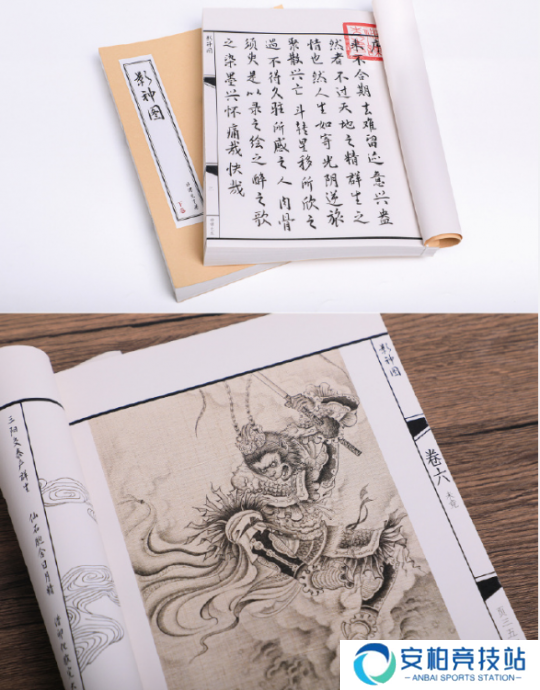 影神图
序
来不合期去难留迹意兴盎
然者不过天地之精群生之
情也然人生如寄光阴逆旅
聚散兴亡斗转星移所欣之
遇不得久驻所感之人肉骨
须臾是以录之绘之醉之歌
之染墨兴怀痛哉快哉
影神图
卷六
三阳交泰产群生
仙石胞含日月精
借卵化猴完
安柏竞技站
ANBAI SPORTS STATION